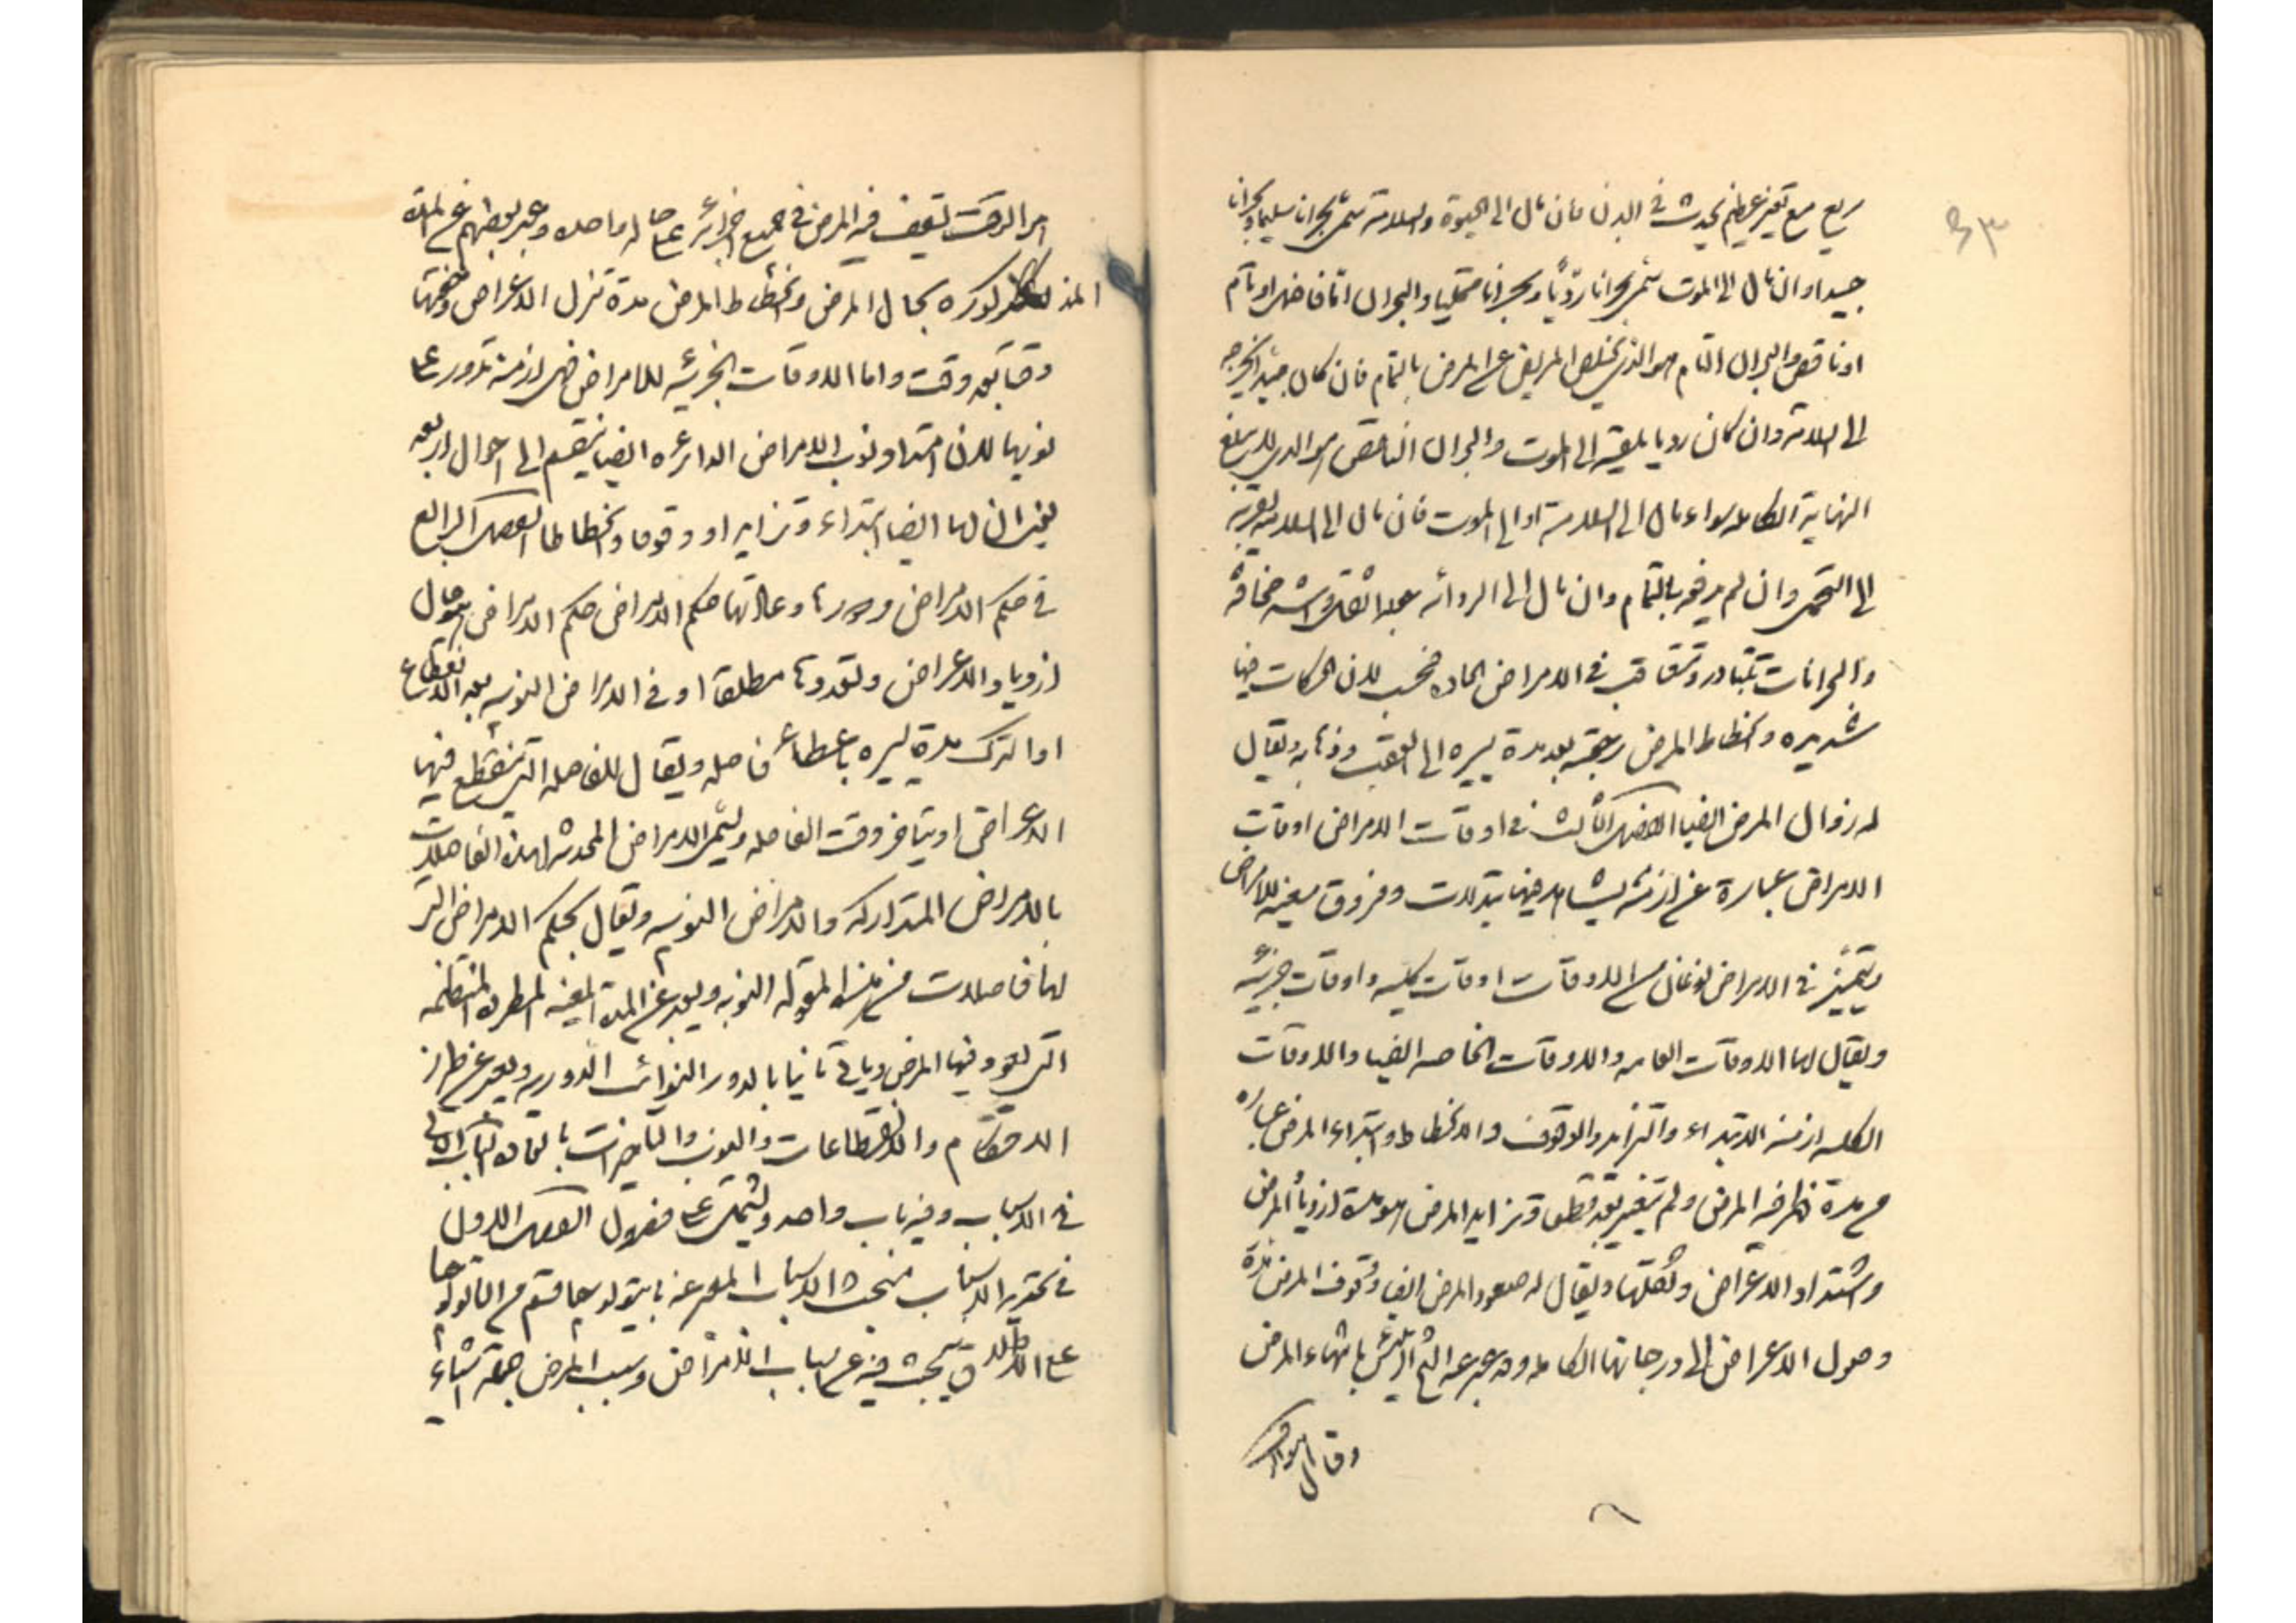 ٤٣
سريع مع تغير عظيم يحدث في البدن فان مال الى الحيوة والسلامة يسمى بحرانا سليما وبحرانا
جيدا وان مال الى الموت يسمى بحرانا رديًا وبحرانا مهلكا والبحران اما فاضل او تام
او ناقص والبحران التام هو الذي يخلص المريض عن المرض بالتمام فان كان جيدا يخرجه
الى السلامة وان كان رديا يلقيه الى الموت والبحران الناقص هو الذي لا يبلغ
النهاية الكاملة سواء مال الى السلامة او الى الموت فان مال الى السلامة يقربه
الى الصحة وان لم يدفعه بالتمام وان مال الى الردائه يجعله اثقل واشد مخافة
والبحرانات تتبادر وتتعاقب في الامراض الحاده فحسب لان الحركات فيها
شديده وانحطاط المرض رجعته بعد مدة يسيره الى العقب وذهابه ويقال
له زوال المرض ايضا الفصل الثالث في اوقات الامراض اوقات
الامراض عبارة عن ازمنة يشاهد فيها تبدلات وفروق معينه للامراض
ويتميز في الامراض نوعان من الاوقات اوقات كليه واوقات جزئيه
ويقال لها الاوقات العامه والاوقات الخاصه ايضا والاوقات
الكليه ازمنة الابتداء والتزايد والوقوف والانحطاط وابتداء المرض عباره
من مدة ظهر فيه المرض ولم يتغير بعد قطعا وتزايد المرض هو مدة ازدياد المرض
واشتداد الاعراض وثقلتها ويقال له صعود المرض ايضا ووقوف المرض مدة
وصول الاعراض الى درجاتها الكاملة وقد عبر عنه الشيخ الرئيس بانتهاء المرض
وقال هو الوقت
هو الوقت يقف فيه المرض في جميع اجزائه على حالة واحده وعبر بعضهم عن المدة
المذكوره بكمال المرض وانحطاط المرض مدة تنزل الاعراض وخفتها
وقتا بعد وقت واما الاوقات الجزئيه للامراض فهي ازمنة تدور على
نوبها لان امتداد نوب الامراض الدائره ايضا ينقسم الى احوال اربعه
يعني ان لها ايضا ابتداء وتزايدا ووقوفا وانحطاطا الفصل الرابع
في حكم الامراض ودورها وعلاتها حكم الامراض حكم الامراض هو حال
ازدياد الاعراض وتعددها مطلقا او في الامراض النوبيه بعد انقطاع
او الترك مدة يسيره باعطاء فاصله ويقال للفاصله التي تنقطع فيها
الاعراض او يتاخر وقت الفاصله ويسمى الامراض المحدثه لهذه الفاصلات
بالامراض المتداركه والامراض النوبيه ويقال بحكم الامراض التي
لها فاصلات من هذه المقوله النوبه ويعبر عن المدة المعينه المطرده المنتظمه
التي يعود فيها المرض وياتي ثانيا بالدور النوائب الدوريه ويعبر عن طراز
الاحكام والانقطاعات والنوب والتاخرات بالعاده الباب الثاني
في الاسباب وفيه باب واحد ويشتمل على فصول الفصل الاول
في تحقيق الاسباب مبحث الاسباب المعبر عنه بايتولوجيا قسم من الباتولوجيا
على الاطلاق يبحث فيه عن اسباب الامراض وسبب المرض جملة اشياء